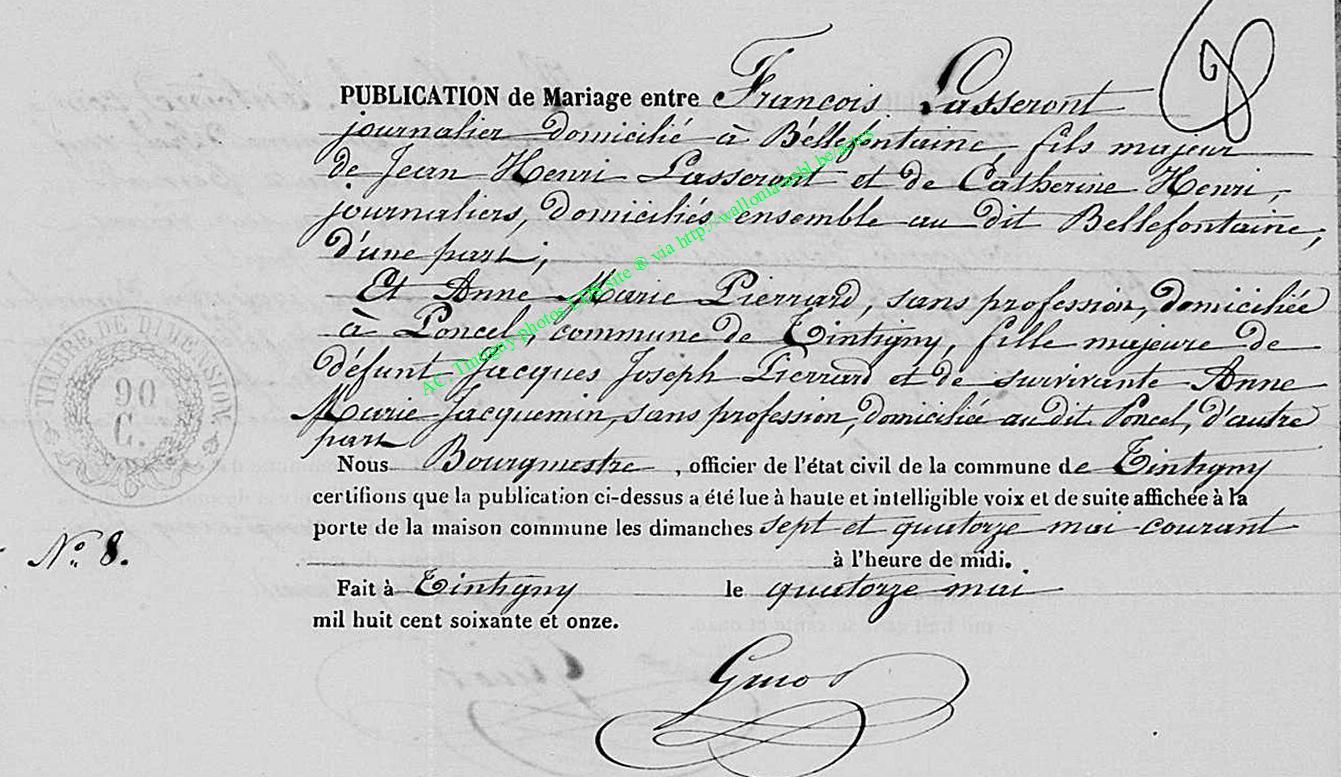 PUBLICATION de Mariage entre François Lasseront
journalier domicilié à Bellefontaine, fils majeur
de Jean Henri Lasseront et de Catherine Henri,
journaliers, domiciliés ensemble au dit Bellefontaine,
d'une part;
Et Anne Marie Pierrard, sans profession, domiciliée
à Poncel, commune de Tintigny, fille majeure de
défunt Jacques Joseph Pierrard et de survivante Anne
Marie Jacquemin, sans profession, domiciliée au dit Poncel, d'autre
part
Nous Bourgmestre, officier de l'état civil de la commune de Tintigny
certifions que la publication ci-dessus a été lue à haute et intelligible voix et de suite affichée à la
porte de la maison commune les dimanches sept et quatorze mai courant
à l'heure de midi.
Fait à Tintigny le quatorze mai
mil huit cent soixante et onze.
N° 8.
TIMBRE DE DIMENSION
90
C.
AC. Tintigny photos via http://wallonia-asbl.be/actes